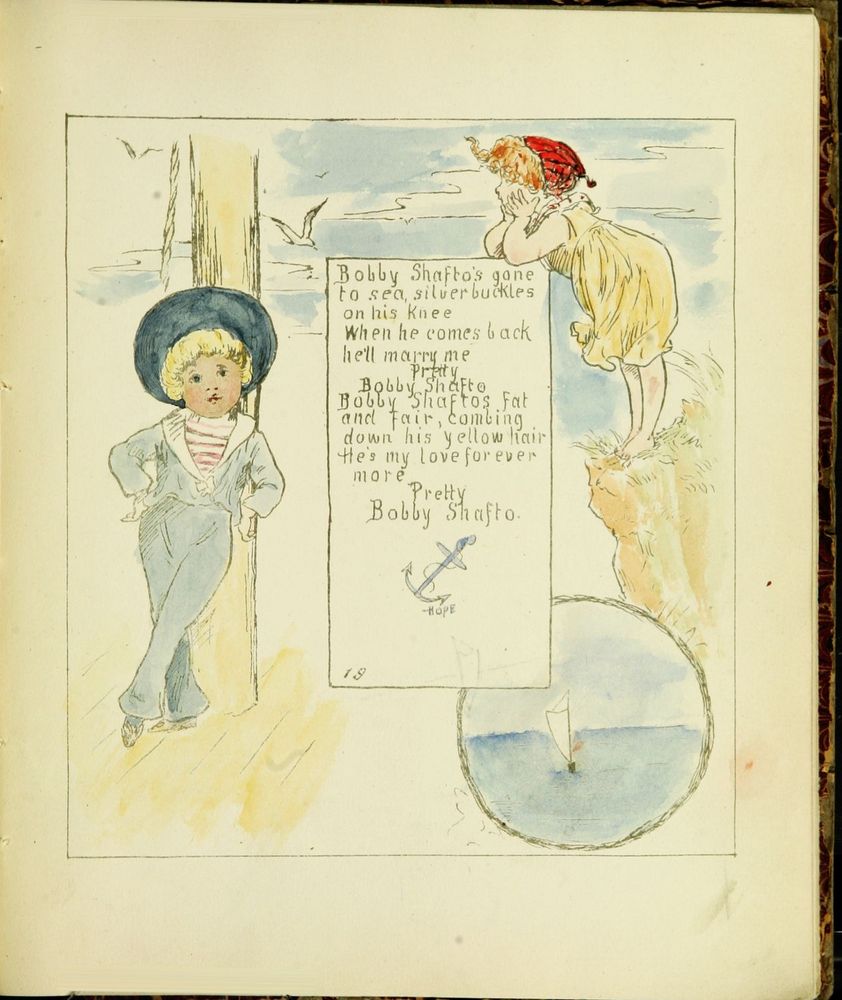 Bobby Shafto's gone
to sea, silver buckles
on his Knee
When he comes back
he'll marry me
Pretty
Bobby Shafto
Bobby Shaftos fat
and fair, combing
down his yellow hair
He's my love forever
more
Pretty
Bobby Shafto.
HOPE
19